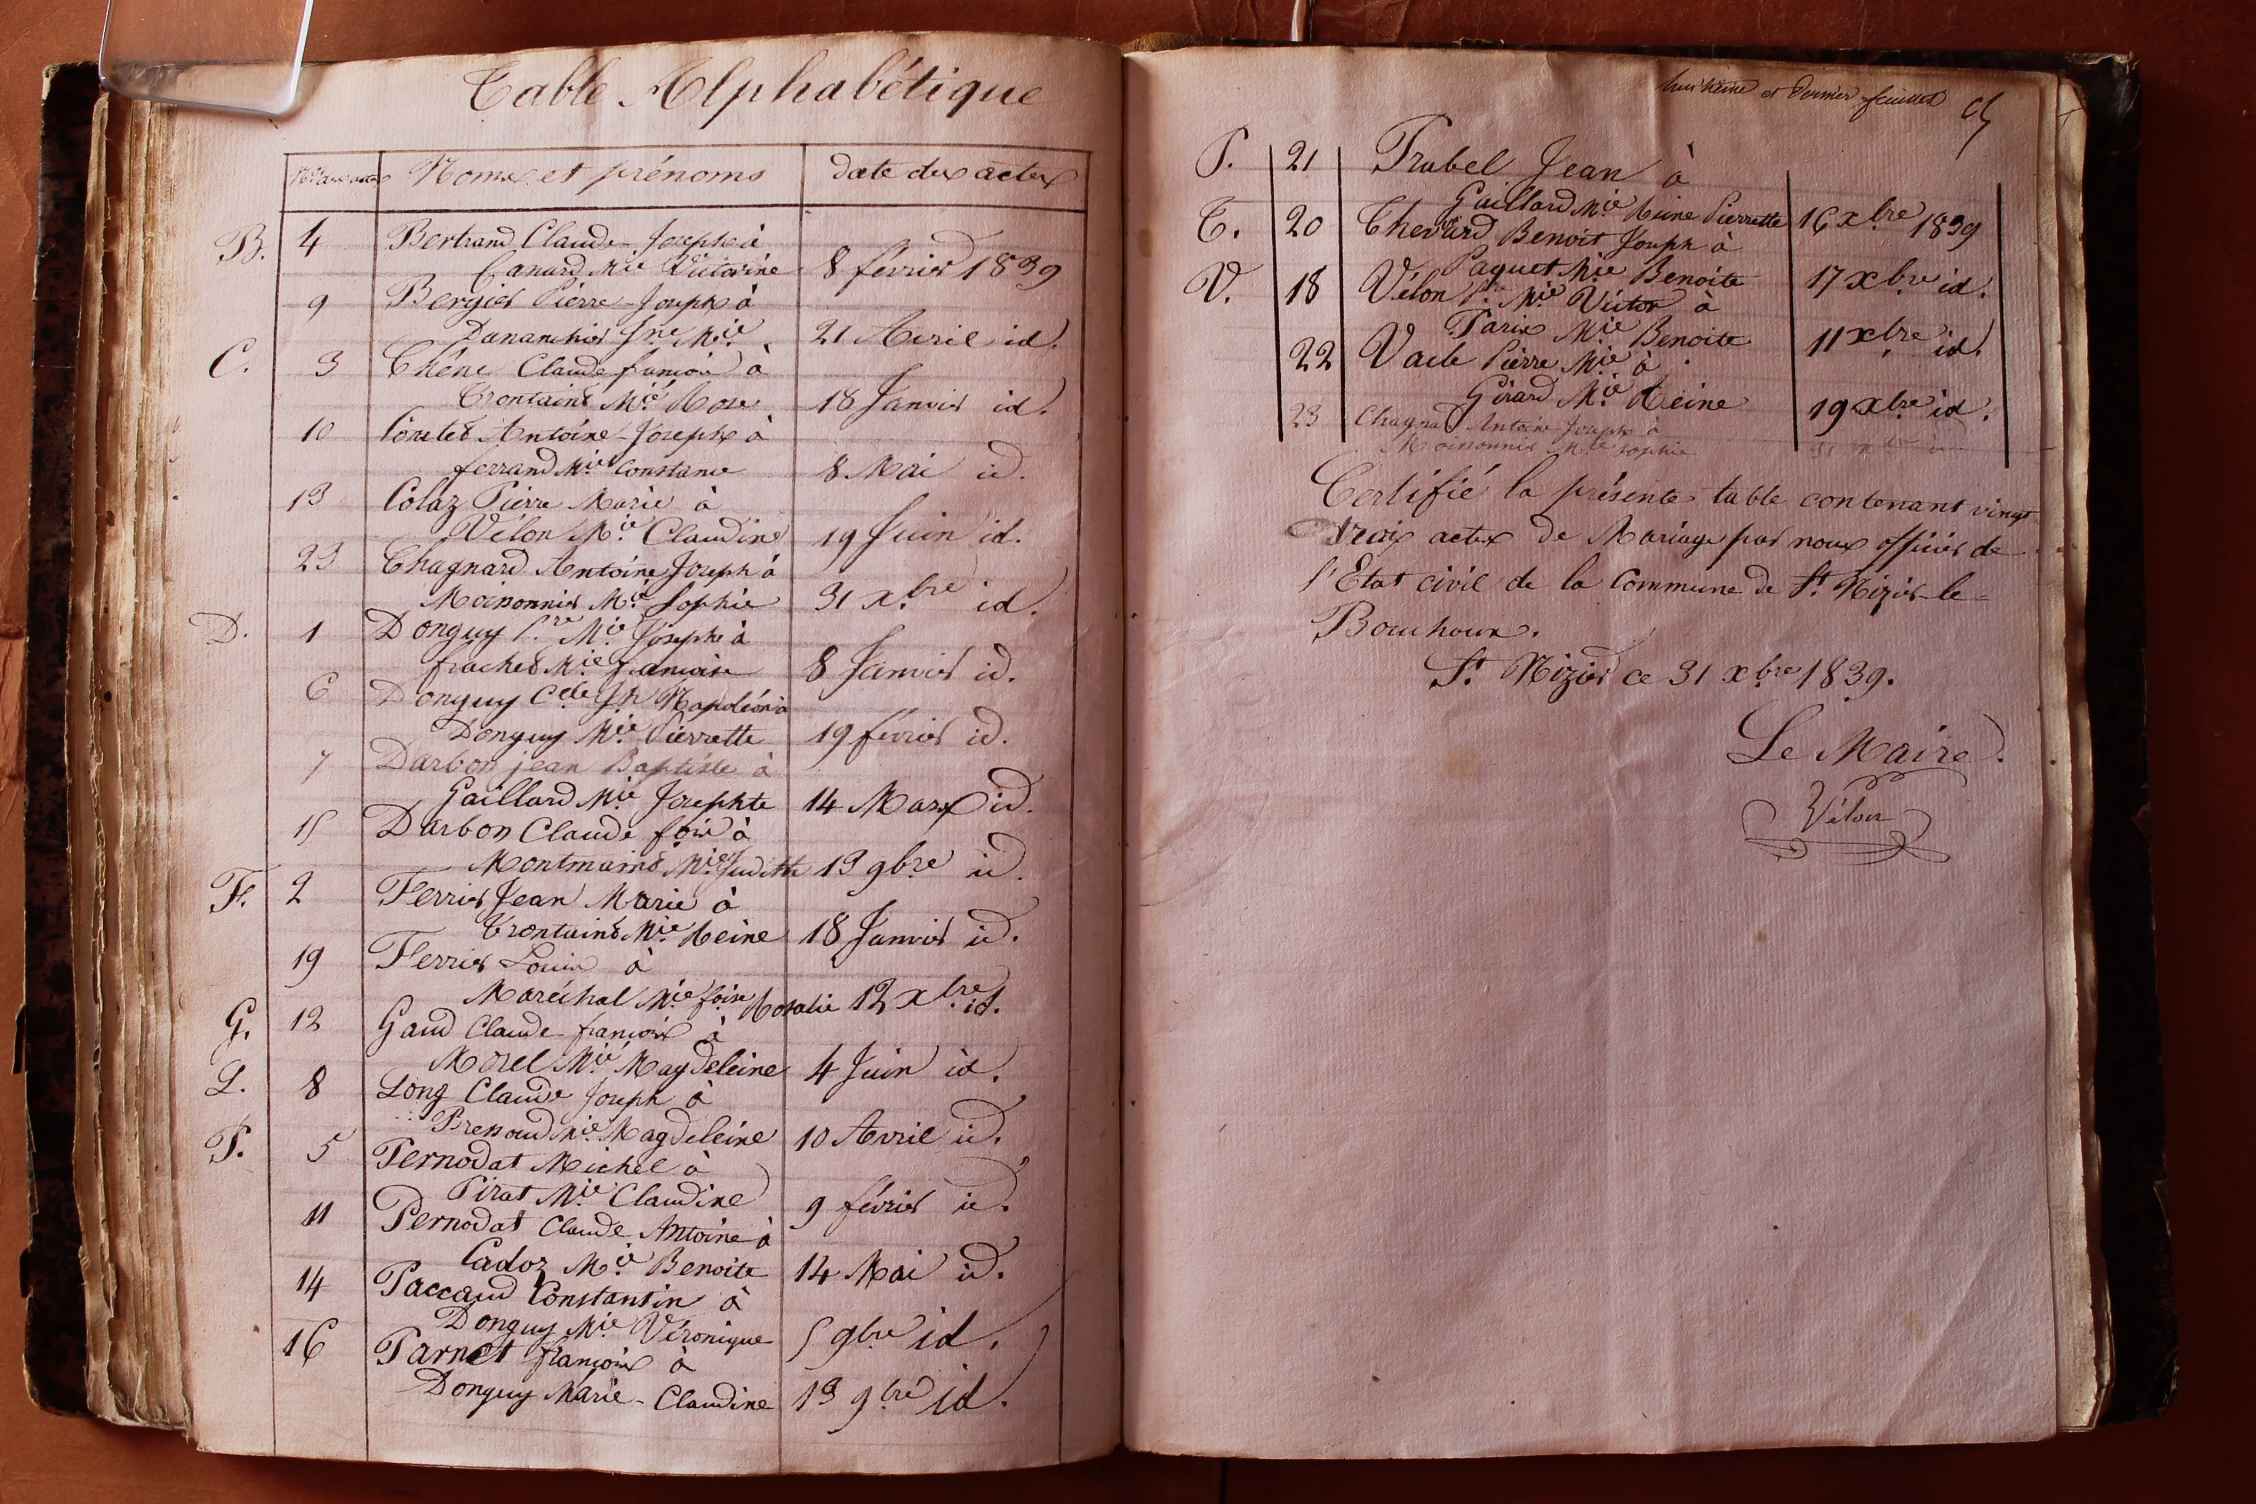 Table Alphabétique
Nos des actes Noms et prénoms date des actes
B. 4 Bertrand Claude Joseph à
Canard Mie Victorine 8 février 1839
9 Bergier Pierre-Joseph à
Dananchier Jne Mie 21 Avril id.
C. 3 Chêne Claude françois à
Trontaint Mie Rose 18 Janvier id.
10 Antoine-Joseph à
ferrand Mie Constance 8 Mai id.
13 Colaz Pierre Marie à
Vélon Mie Claudine 19 Juin id.
23 Chagnard Antoine Joseph à
Moisonnier Mie Sophie 31 xbre id.
D. 1 Donguy Pre Mie Joseph à
frachet Mie françoise 8 Janvier id.
6 Donguy Cde Jh Napoléon à
Donguy Mie Pierrette 19 février id.
7 Darbon jean Baptiste à
Gaillard Mie Josephte 14 Mars id.
15 Darbon Claude fois à
Montmaint Mie Judith 13 9bre id.
F. 2 Ferrier Jean Marie à
Trontaint Mie Reine 18 Janvier id.
19 Ferrier Louis à
Maréchal Mie foise Rosalie 12 xbre id.
G. 12 Gaud Claude françois à
Morel Mie Magdeleine 4 Juin id.
L. 8 Long Claude Joseph à
Pressoud Mie Magdeleine 10 Avril id.
P. 5 Pernodat Michel à
Pirat Mie Claudine 9 février id.
11 Pernodat Claude Antoine à
Cadoz Mie Benoite 14 Mai id.
14 Paccaud Constantin à
Donguy Mie Véronique 5 9bre id.
16 Parnet françois à
Donguy Marie-Claudine 13 9bre id.
huitième et dernier feuillet
P. 21 Jean à
Gaillard Mie Reine Pierrette 16 xbre 1839
T. 20 Thevard Benoit Joseph à
Paquet Mie Benoite 17 xbre id.
V. 18 Vélon Pre Mie Victor à
Parix Mie Benoite 11 xbre id.
22 Pierre Mie à
Girard Mie Reine 19 xbre id.
23 Chagnard Antoine Joseph à
Moisonnier Mie Sophie 31 xbre id
Certifié la présente table contenant vingt
trois actes de Mariage par nous officier de
l'Etat civil de la Commune de St Nizier-le-
Bouchoux.
St Nizier ce 31 xbre 1839.
Le Maire.
Vélon